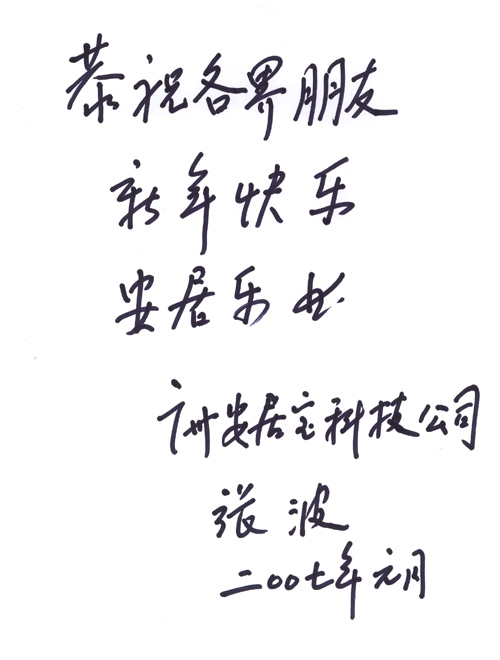 恭祝各界朋友
新年快乐
安居乐业
广州安居宝科技公司
张波
二00七年元月